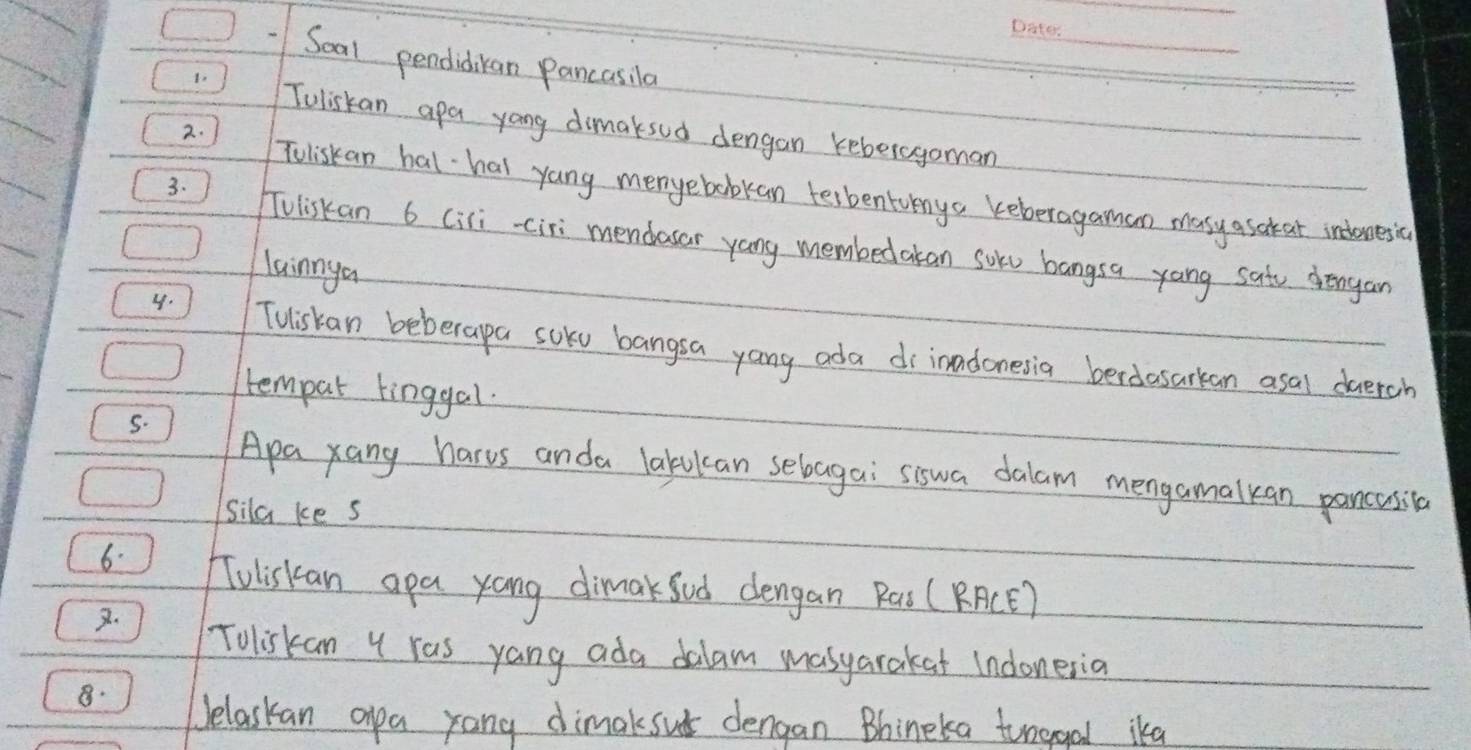 Date:
- Soal pendidikan Pancasila
1. Tuliskan apa yang dimaksud dengan keberagaman
2. Tuliskan hal-hal yang menyebabkan terbentuknya keberagaman masyasakat indonesia
3. Tuliskan 6 ciri-ciri mendasar yang membedakan suku bangsa yang satu dengan
lainnya
4. Tuliskan beberapa suku bangsa yang ada di inndonesia berdasarkan asal daerah
tempat tinggal.
5. Apa yang harus anda lakukan sebagai siswa dalam mengamalkan pancasila
sila ke 5
6. Tuliskan apa yang dimaksud dengan Ras (RACE)
7. Tuliskan 4 ras yang ada dalam masyarakat Indonesia
8. Jelaskan apa yang dimaksud dengan Bhineka tunggal ika